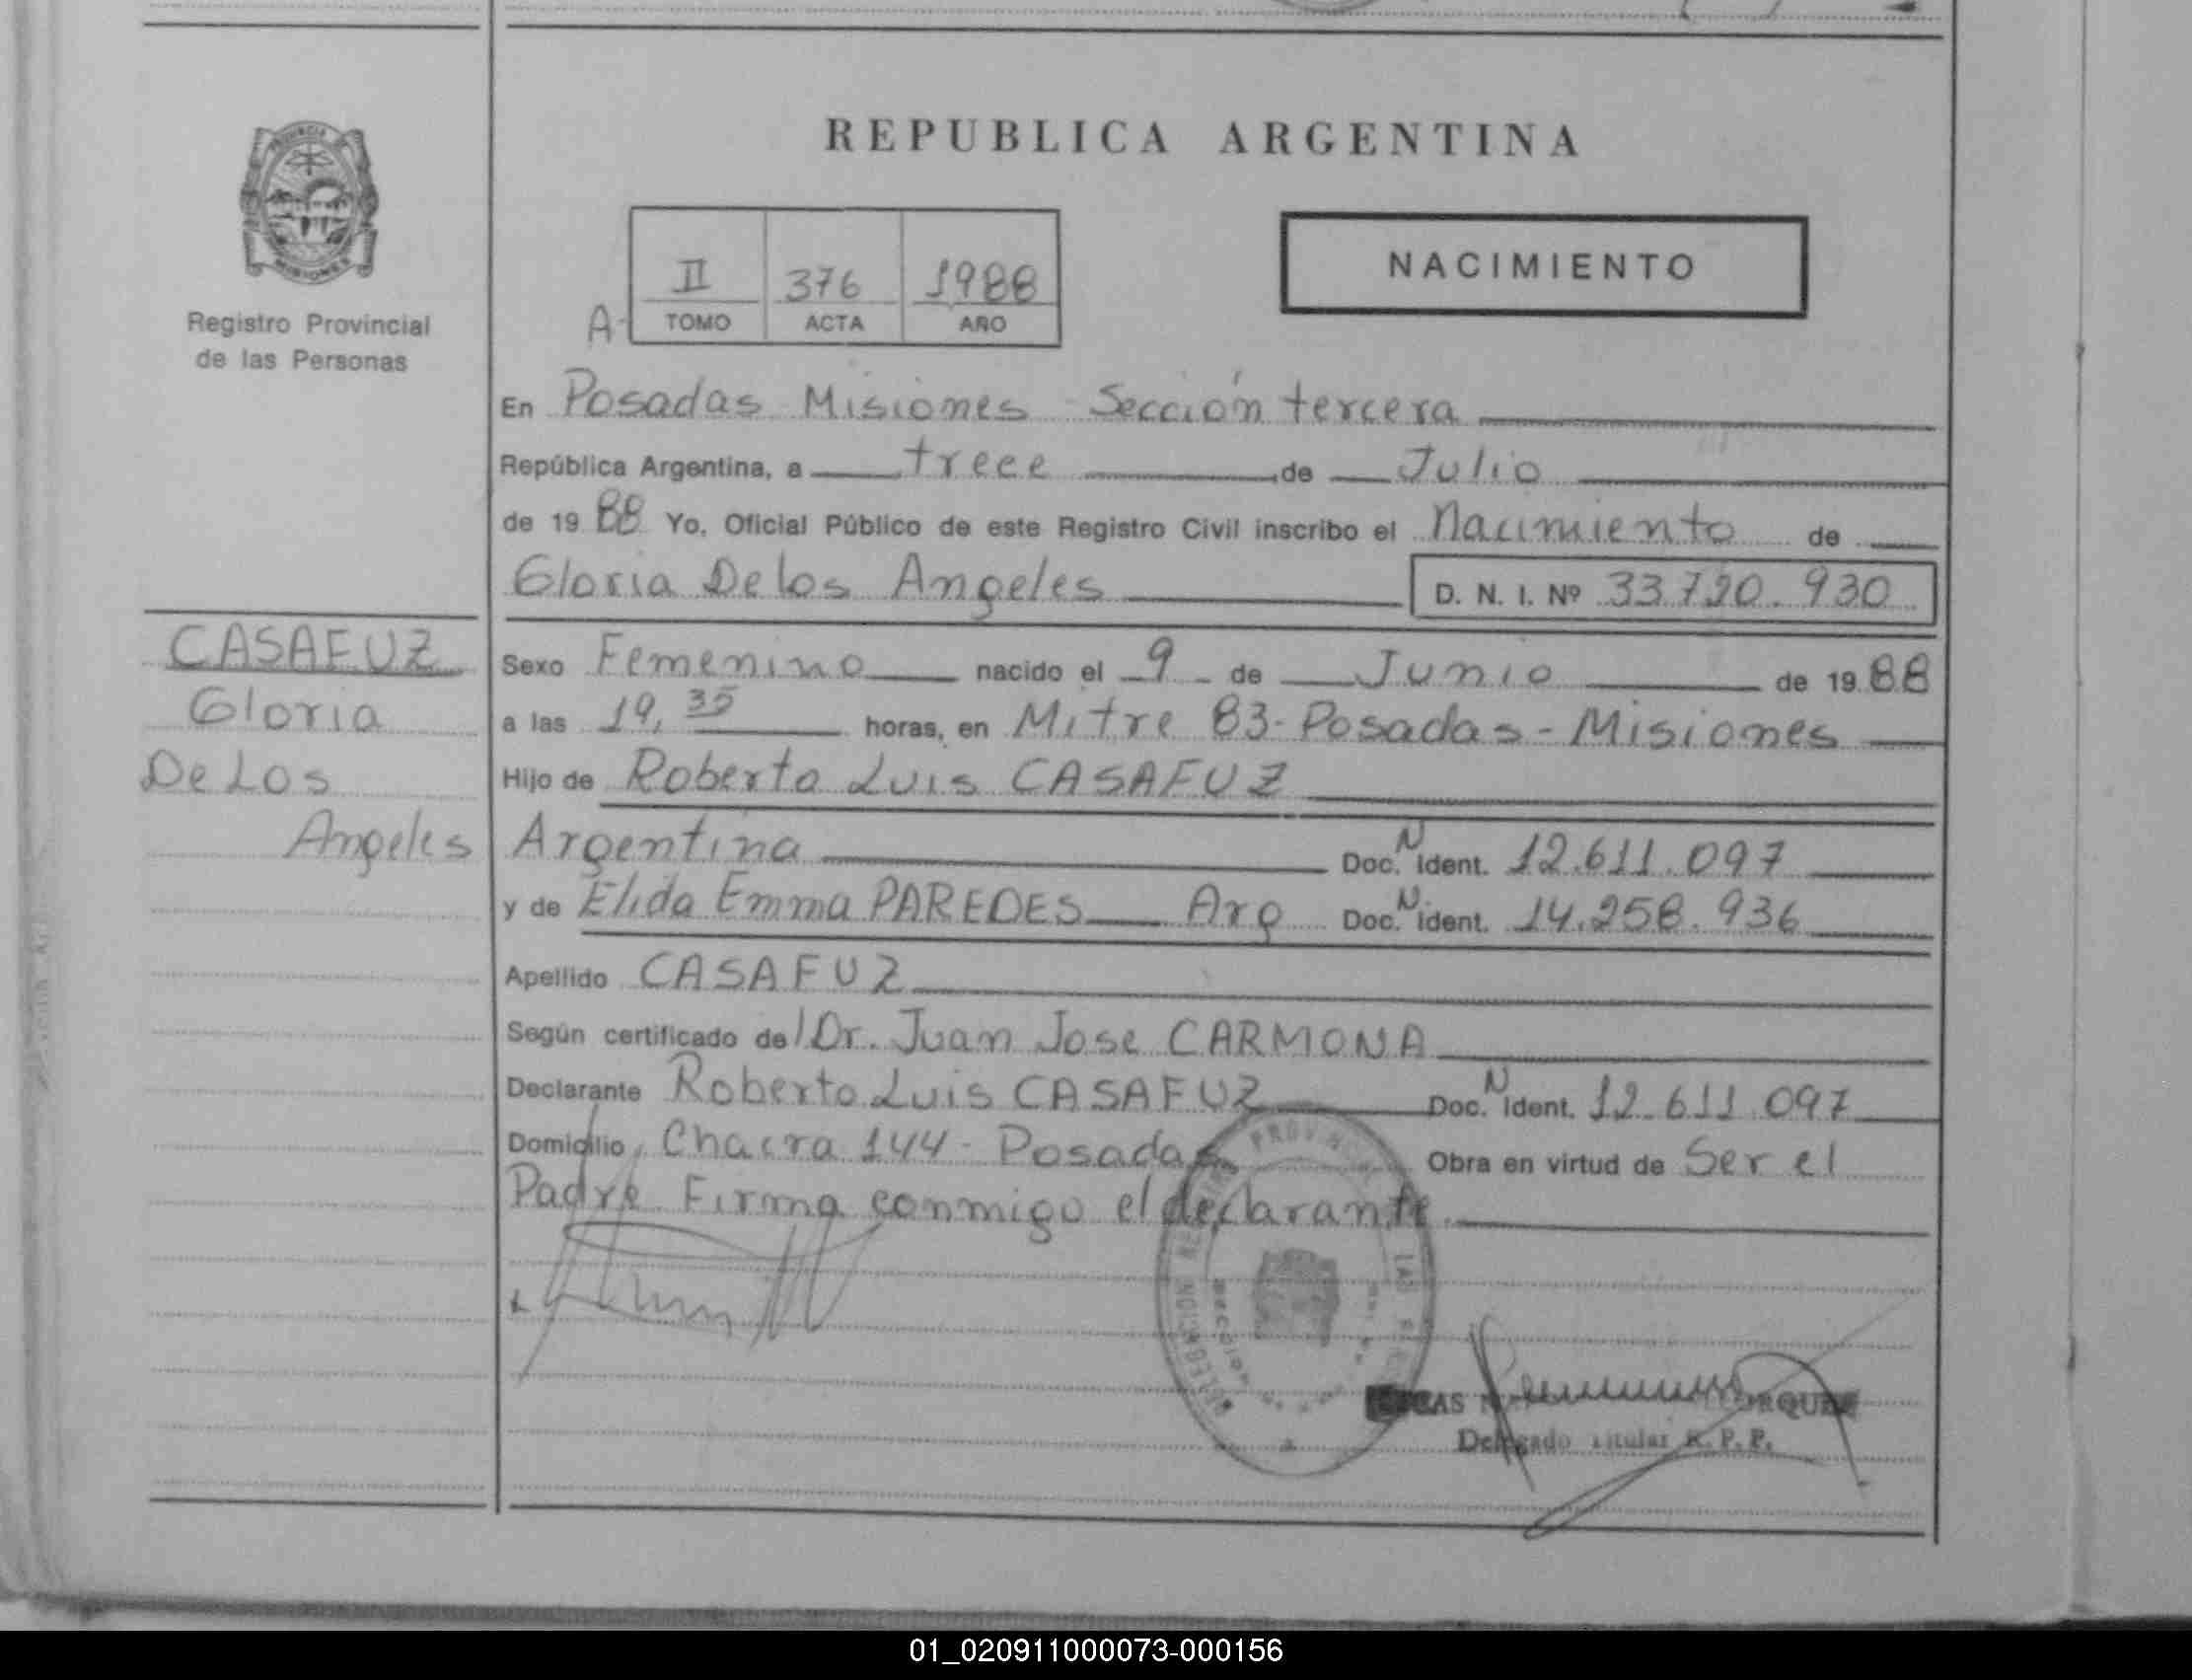 REPUBLICA ARGENTINA
NACIMIENTO
II 376 1988
A- TOMO ACTA AÑO
Registro Provincial
de las Personas
En Posadas Misiones Sección tercera
República Argentina, a trece de Julio
de 19 88 Yo, Oficial Público de este Registro Civil inscribo el Nacimiento de
Gloria De los Angeles D. N. I. Nº 33.720.930
CASAFUZ
Gloria
De Los
Angeles
Sexo Femenino nacido el 9 de Junio de 19 88
a las 19,35 horas, en Mitre 83- Posadas - Misiones
Hijo de Roberto Luis CASAFUZ
Argentina Doc. N Ident. 12.611.097
y de Elida Emma PAREDES Arg Doc. N Ident. 14.258.936
Apellido CASAFUZ
Según certificado de/Dr. Juan Jose CARMONA
Declarante Roberto Luis CASAFUZ Doc. N Ident. 12.611.097
Domicilio Chacra 144 - Posadas Obra en virtud de Ser el
Padre Firma conmigo el declarante
Delegado Titular R. P. P.
01_020911000073-000156